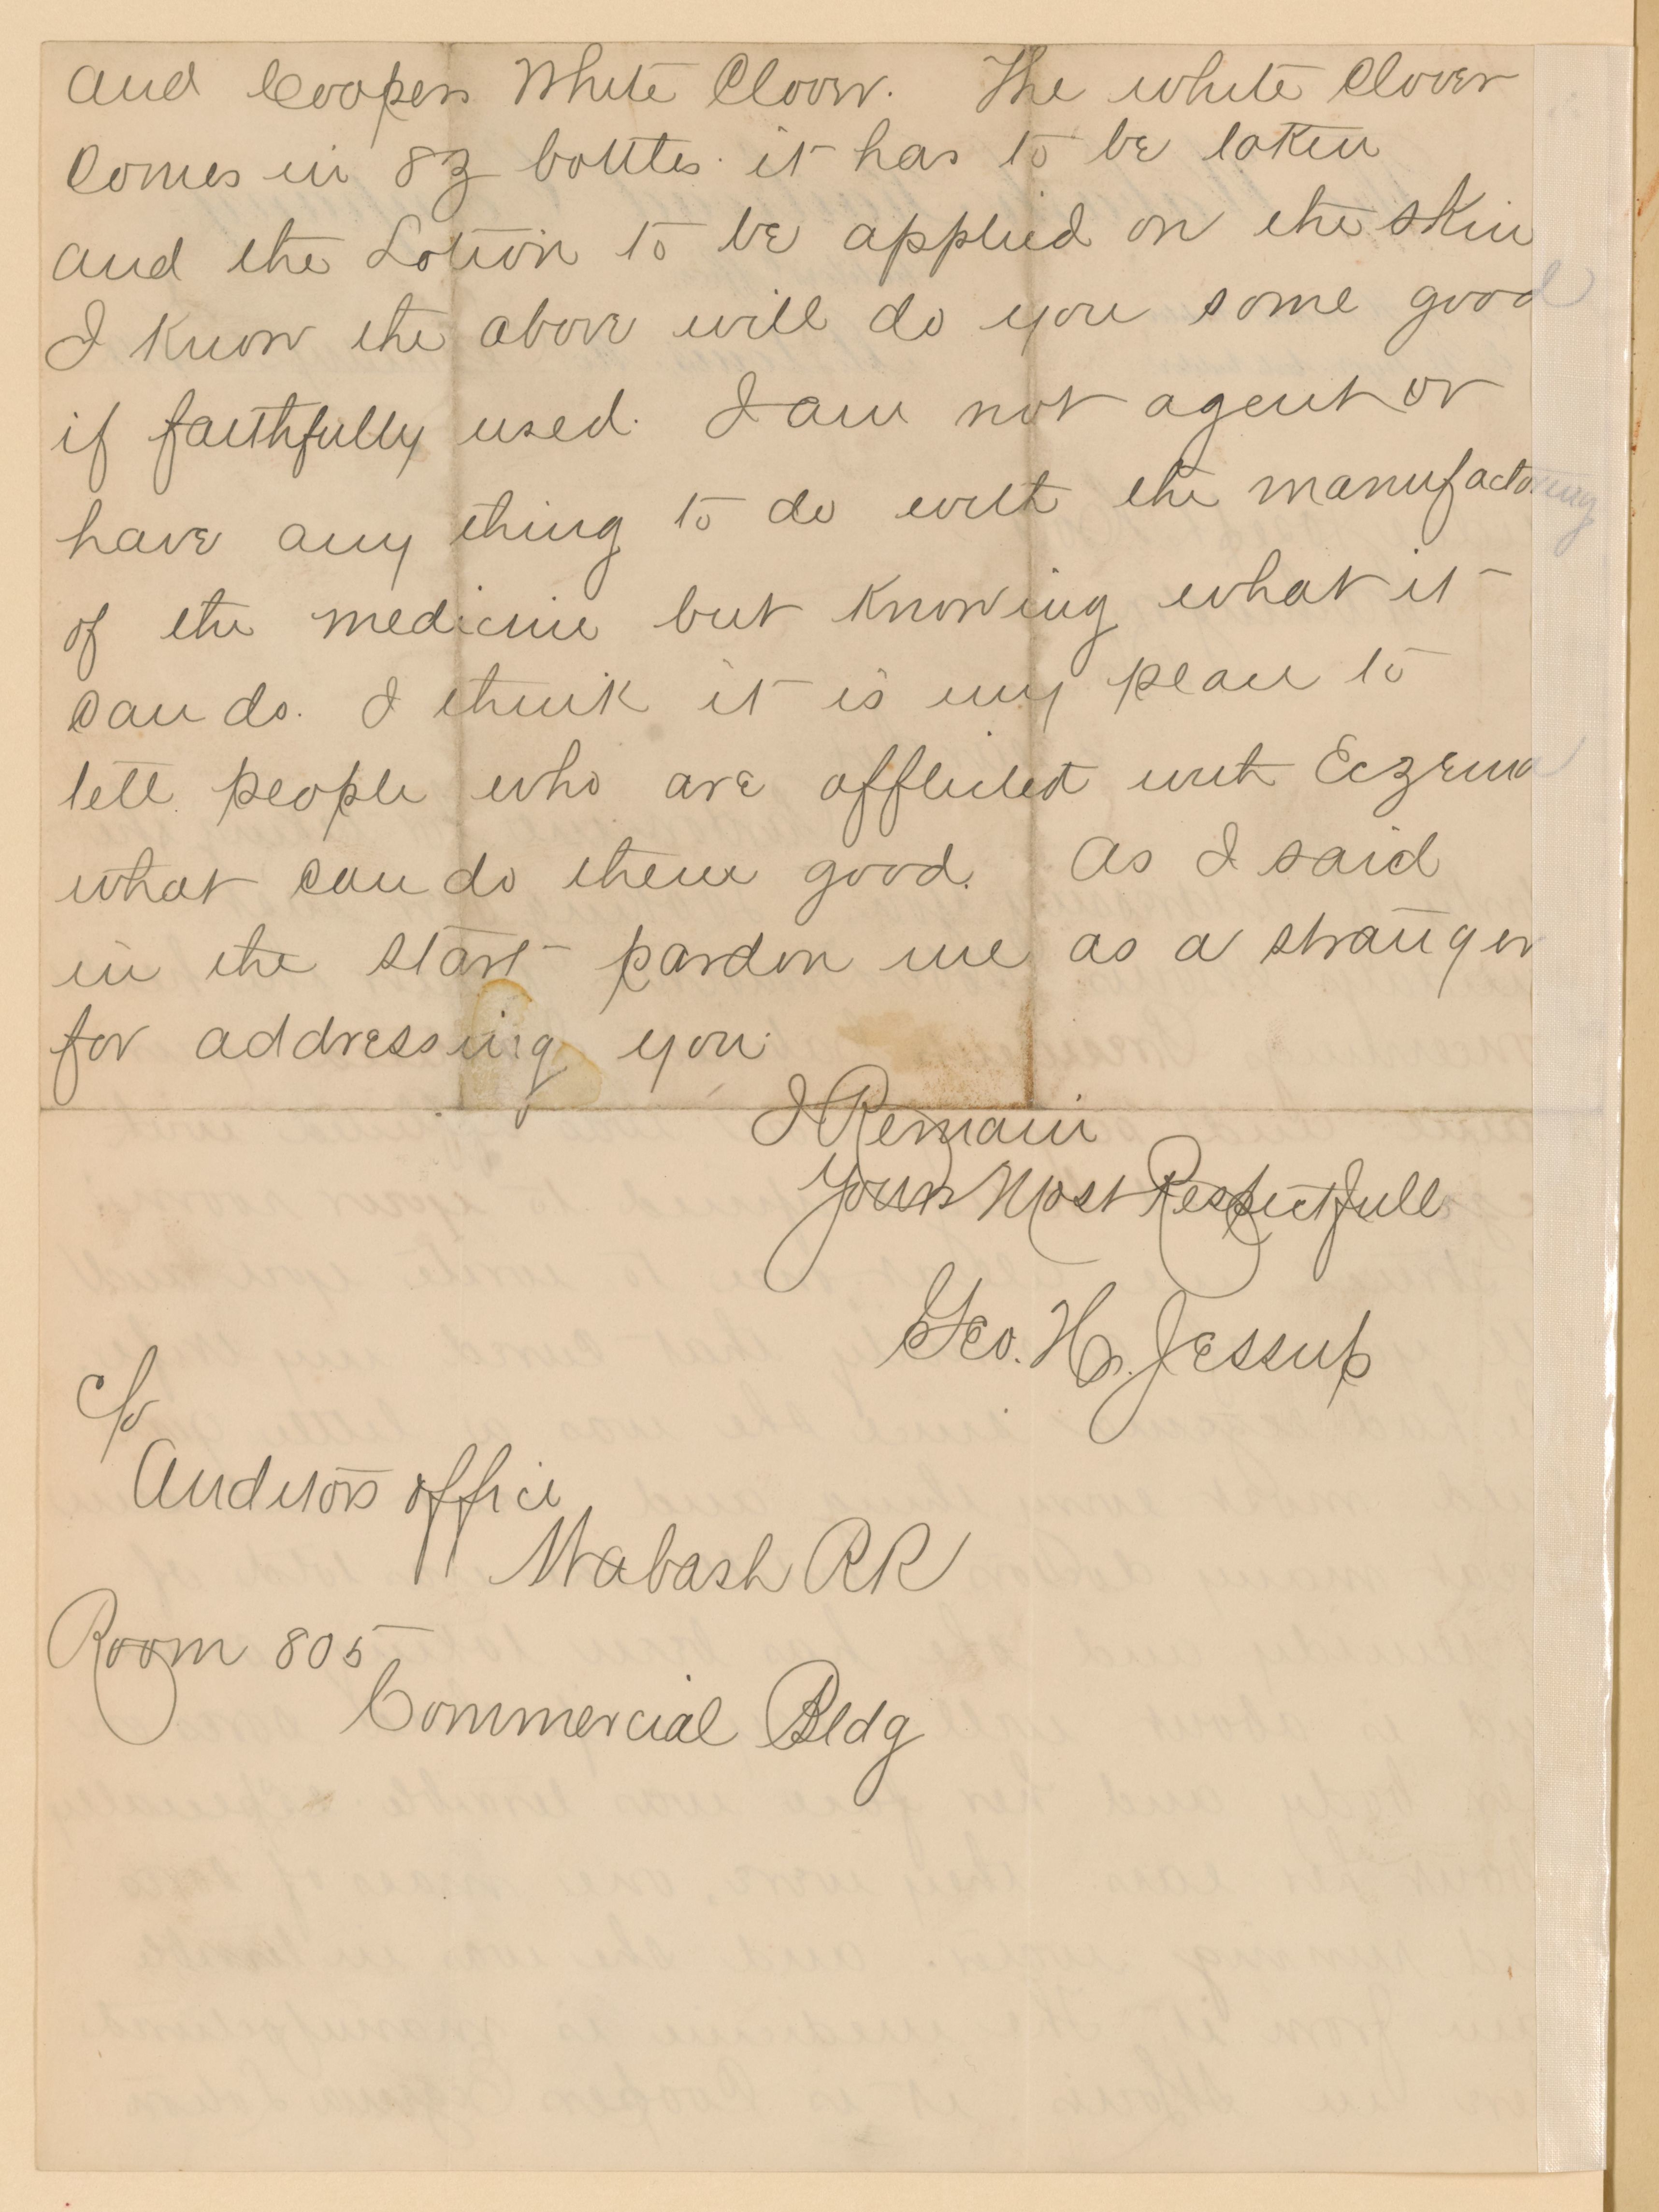 and Coopers White Clover. The white Clover
Comes in 8℥ bottles. it has to be taken
and the Lotion to be applied on the skin
I know the above will do you some good
if faithfully used. I am not agent or
have any thing to do with the manufactoring
of the medicine but knowing what it
can do. I think it is my place to
tell people who are afflicted with Eczema
what can do them good. As I said
in the start pardon me as a stranger
for addressing you.
I Remain
Yours Most Respectfull
Geo. H. Jessup
c/o
Auditors office
Wabash RR
Room 805
Commercial Bldg